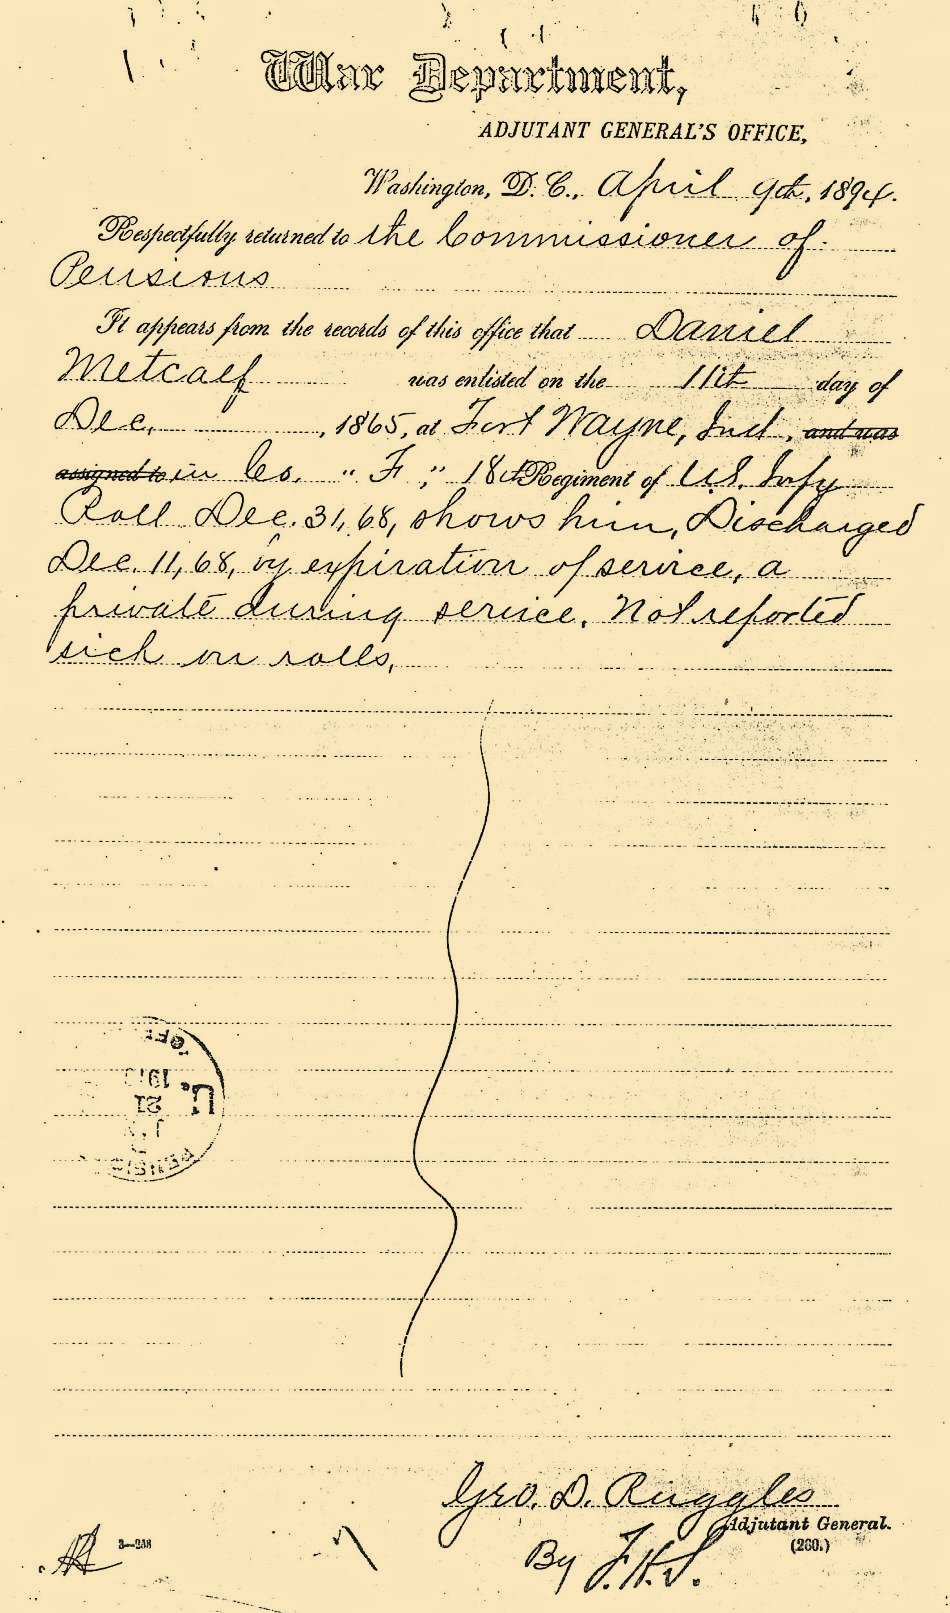 War Department,
ADJUTANT GENERAL'S OFFICE,
Washington, D. C., April 9th, 1894.
Respectfully returned to the Commissioner of
Pensions
It appears from the records of this office that Daniel
Metcalf was enlisted on the 11th day of
Dec. , 1865, at Fort Wayne, Ind. , and was
assigned to in Co. "F," 18th Regiment of U.S. Infy
Roll Dec. 31, 68, shows him, Discharged
Dec. 11, 68, by expiration of service, a
private during service. Not reported
sick on rolls.
OFF
21
U.
PENSI
Geo. D. Ruggles
Adjutant General.
(260.)
By F.H.S.
3—238